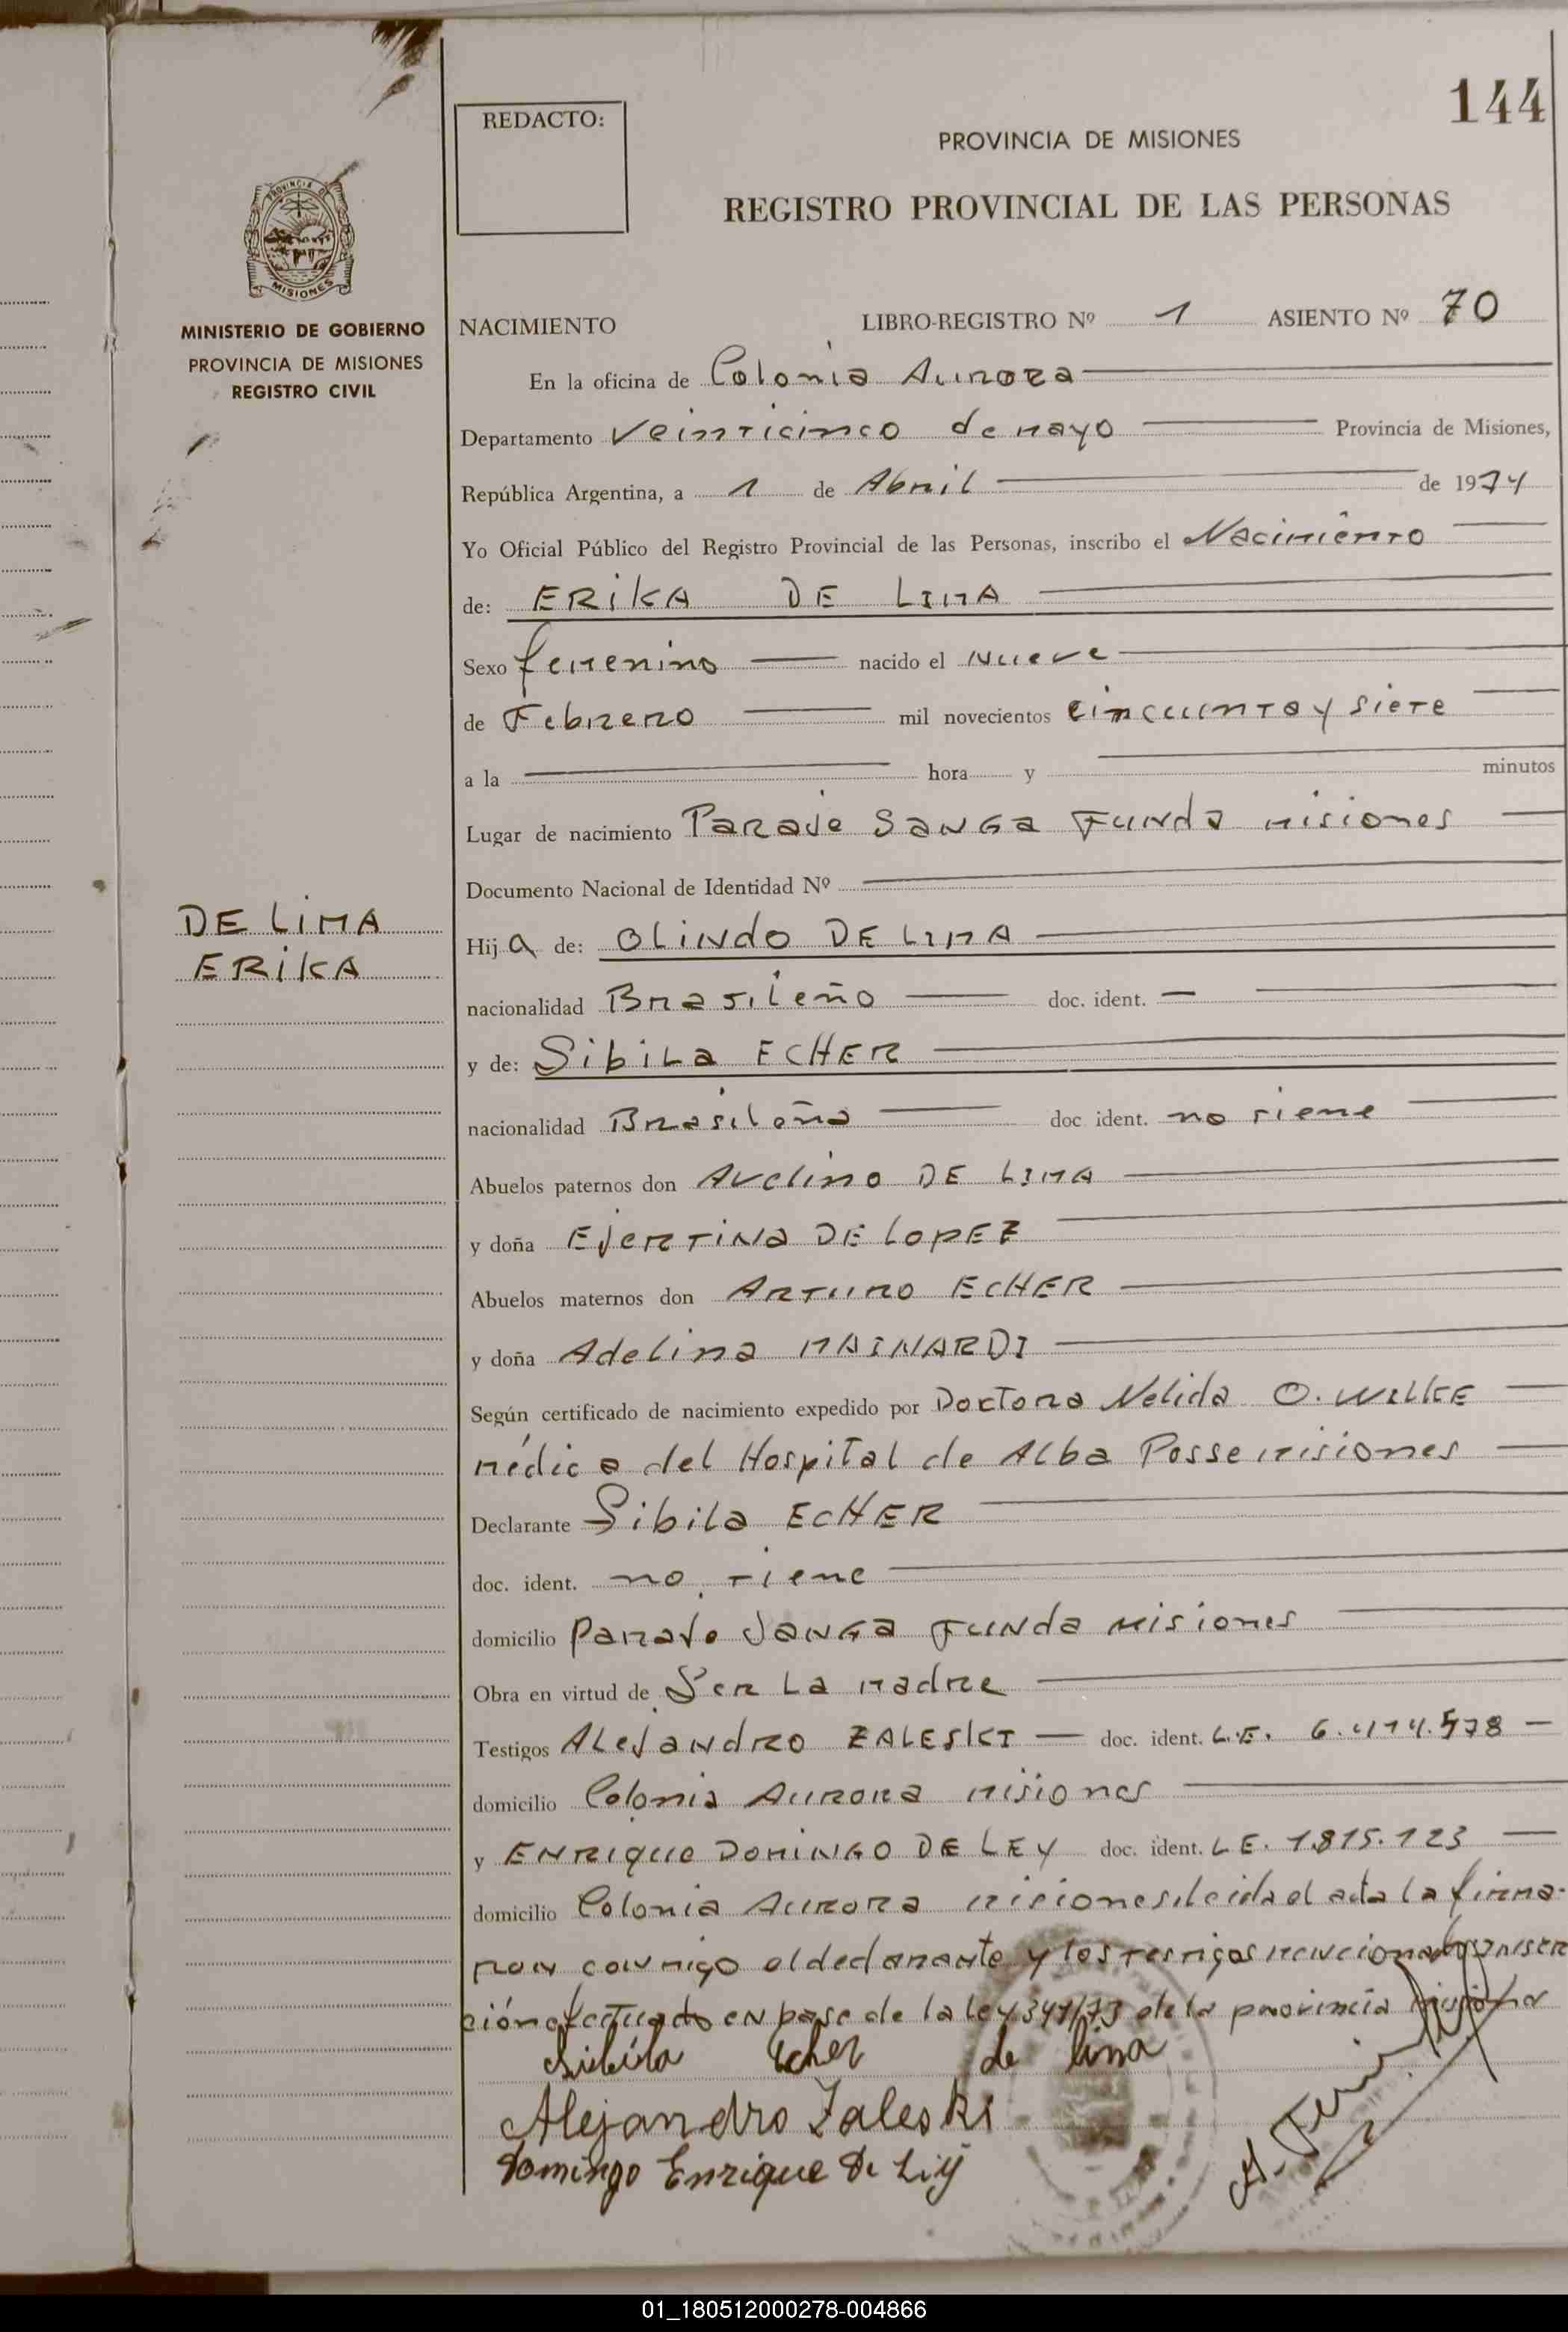 144
REDACTO:
PROVINCIA DE MISIONES
REGISTRO PROVINCIAL DE LAS PERSONAS
PROVINCIA DE
MISIONES
MINISTERIO DE GOBIERNO
PROVINCIA DE MISIONES
REGISTRO CIVIL
NACIMIENTO LIBRO-REGISTRO Nº 1 ASIENTO Nº 70
En la oficina de Colonia Aurora
Departamento Veinticinco de mayo Provincia de Misiones,
República Argentina, a 1 de Abril de 1974
Yo Oficial Público del Registro Provincial de las Personas, inscribo el Nacimiento
de: ERiKA DE LIMA
Sexo femenino nacido el Nueve
de Febrero mil novecientos cincuenta y siete
a la hora y minutos
Lugar de nacimiento Paraje Sanga Funda misiones
Documento Nacional de Identidad Nº
DE LiMA
ERiKA
Hij a de: OLindo DE LIMA
nacionalidad Brasileño doc. ident.
y de: SibiLa ECHER
nacionalidad Brasileña doc ident. no tiene
Abuelos paternos don Avelino DE LIMA
y doña EjertiNa DE LopEZ
Abuelos maternos don Arturo ECHER
y doña Adelina MAINARDI
Según certificado de nacimiento expedido por Doctora Nelida O. WILKE
médica del Hospital de Alba Posse misiones
Declarante Sibila ECHER
doc. ident. no tiene
domicilio Paraje Sanga Funda misiones
Obra en virtud de Ser La madre
Testigos ALejandro ZALESKI doc. ident. L.E. 6.414.578
domicilio Colonia Aurora misiones
y ENRique DomiNGO DE LEY doc. ident. L E. 1.815.123
domicilio Colonia Aurora misiones leida el acta la firma-
ron conmigo el declarante y los testigos mencionados inscri
ción efectuado en base de la ley 341/73 de la provincia
Sibila Echer de lima
Alejandro Zaleski
Domingo Enrique De Ley
01_180512000278-004866